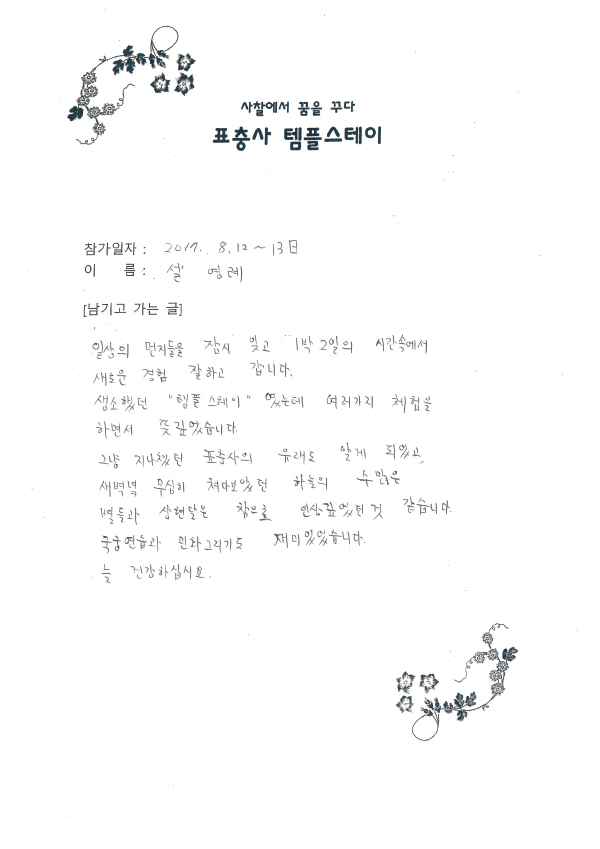 사찰에서 꿈을 꾸다
표충사 템플스테이
참가일자 : 2017. 8. 12 ~ 13日
이 름 : 설 영례
[남기고 가는 글]
일상의 먼지들을 잠시 잊고 1박 2일의 시간속에서
새로운 경험 잘하고 갑니다.
생소했던 "템플 스테이" 였는데 여러가지 체험을
하면서 뜻깊었습니다.
그냥 지나쳤던 표충사의 유래도 알게 되었고,
새벽녘 무심히 쳐다보았던 하늘의 수많은
별들과 상현달은 참으로 인상깊었던 것 같습니다.
국궁연습과 민화그리기도 재미있었습니다.
늘 건강하십시요.